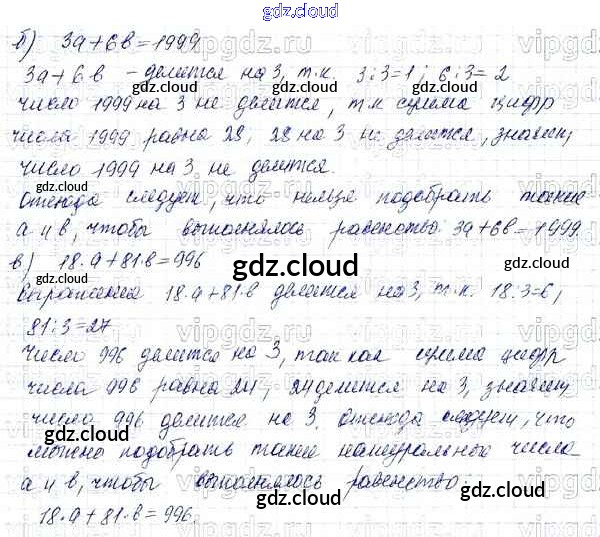 gdz.cloud
б) 3а+6в=1999
3а+6в - делится на 3, т.к. 3:3=1; 6:3=2
число 1999 на 3 не делится, т.к сумма цифр
числа 1999 равна 28, 28 на 3 не делится, значит,
число 1999 на 3 не делится.
Отсюда следует, что нельзя подобрать такие
а и в, чтобы выполнялось равенство 3а+6в=1999
в) 18·а+81·в=996
Выражение 18·а+81·в делится на 3, т.к. 18:3=6,
81:3=27
Число 996 делится на 3, так как сумма цифр
числа 996 равна 24, 24 делится на 3, значит,
число 996 делится на 3. Отсюда следует, что
можно подобрать такие натуральные числа
а и в, чтобы выполнялось равенство
18·а+81·в=996.